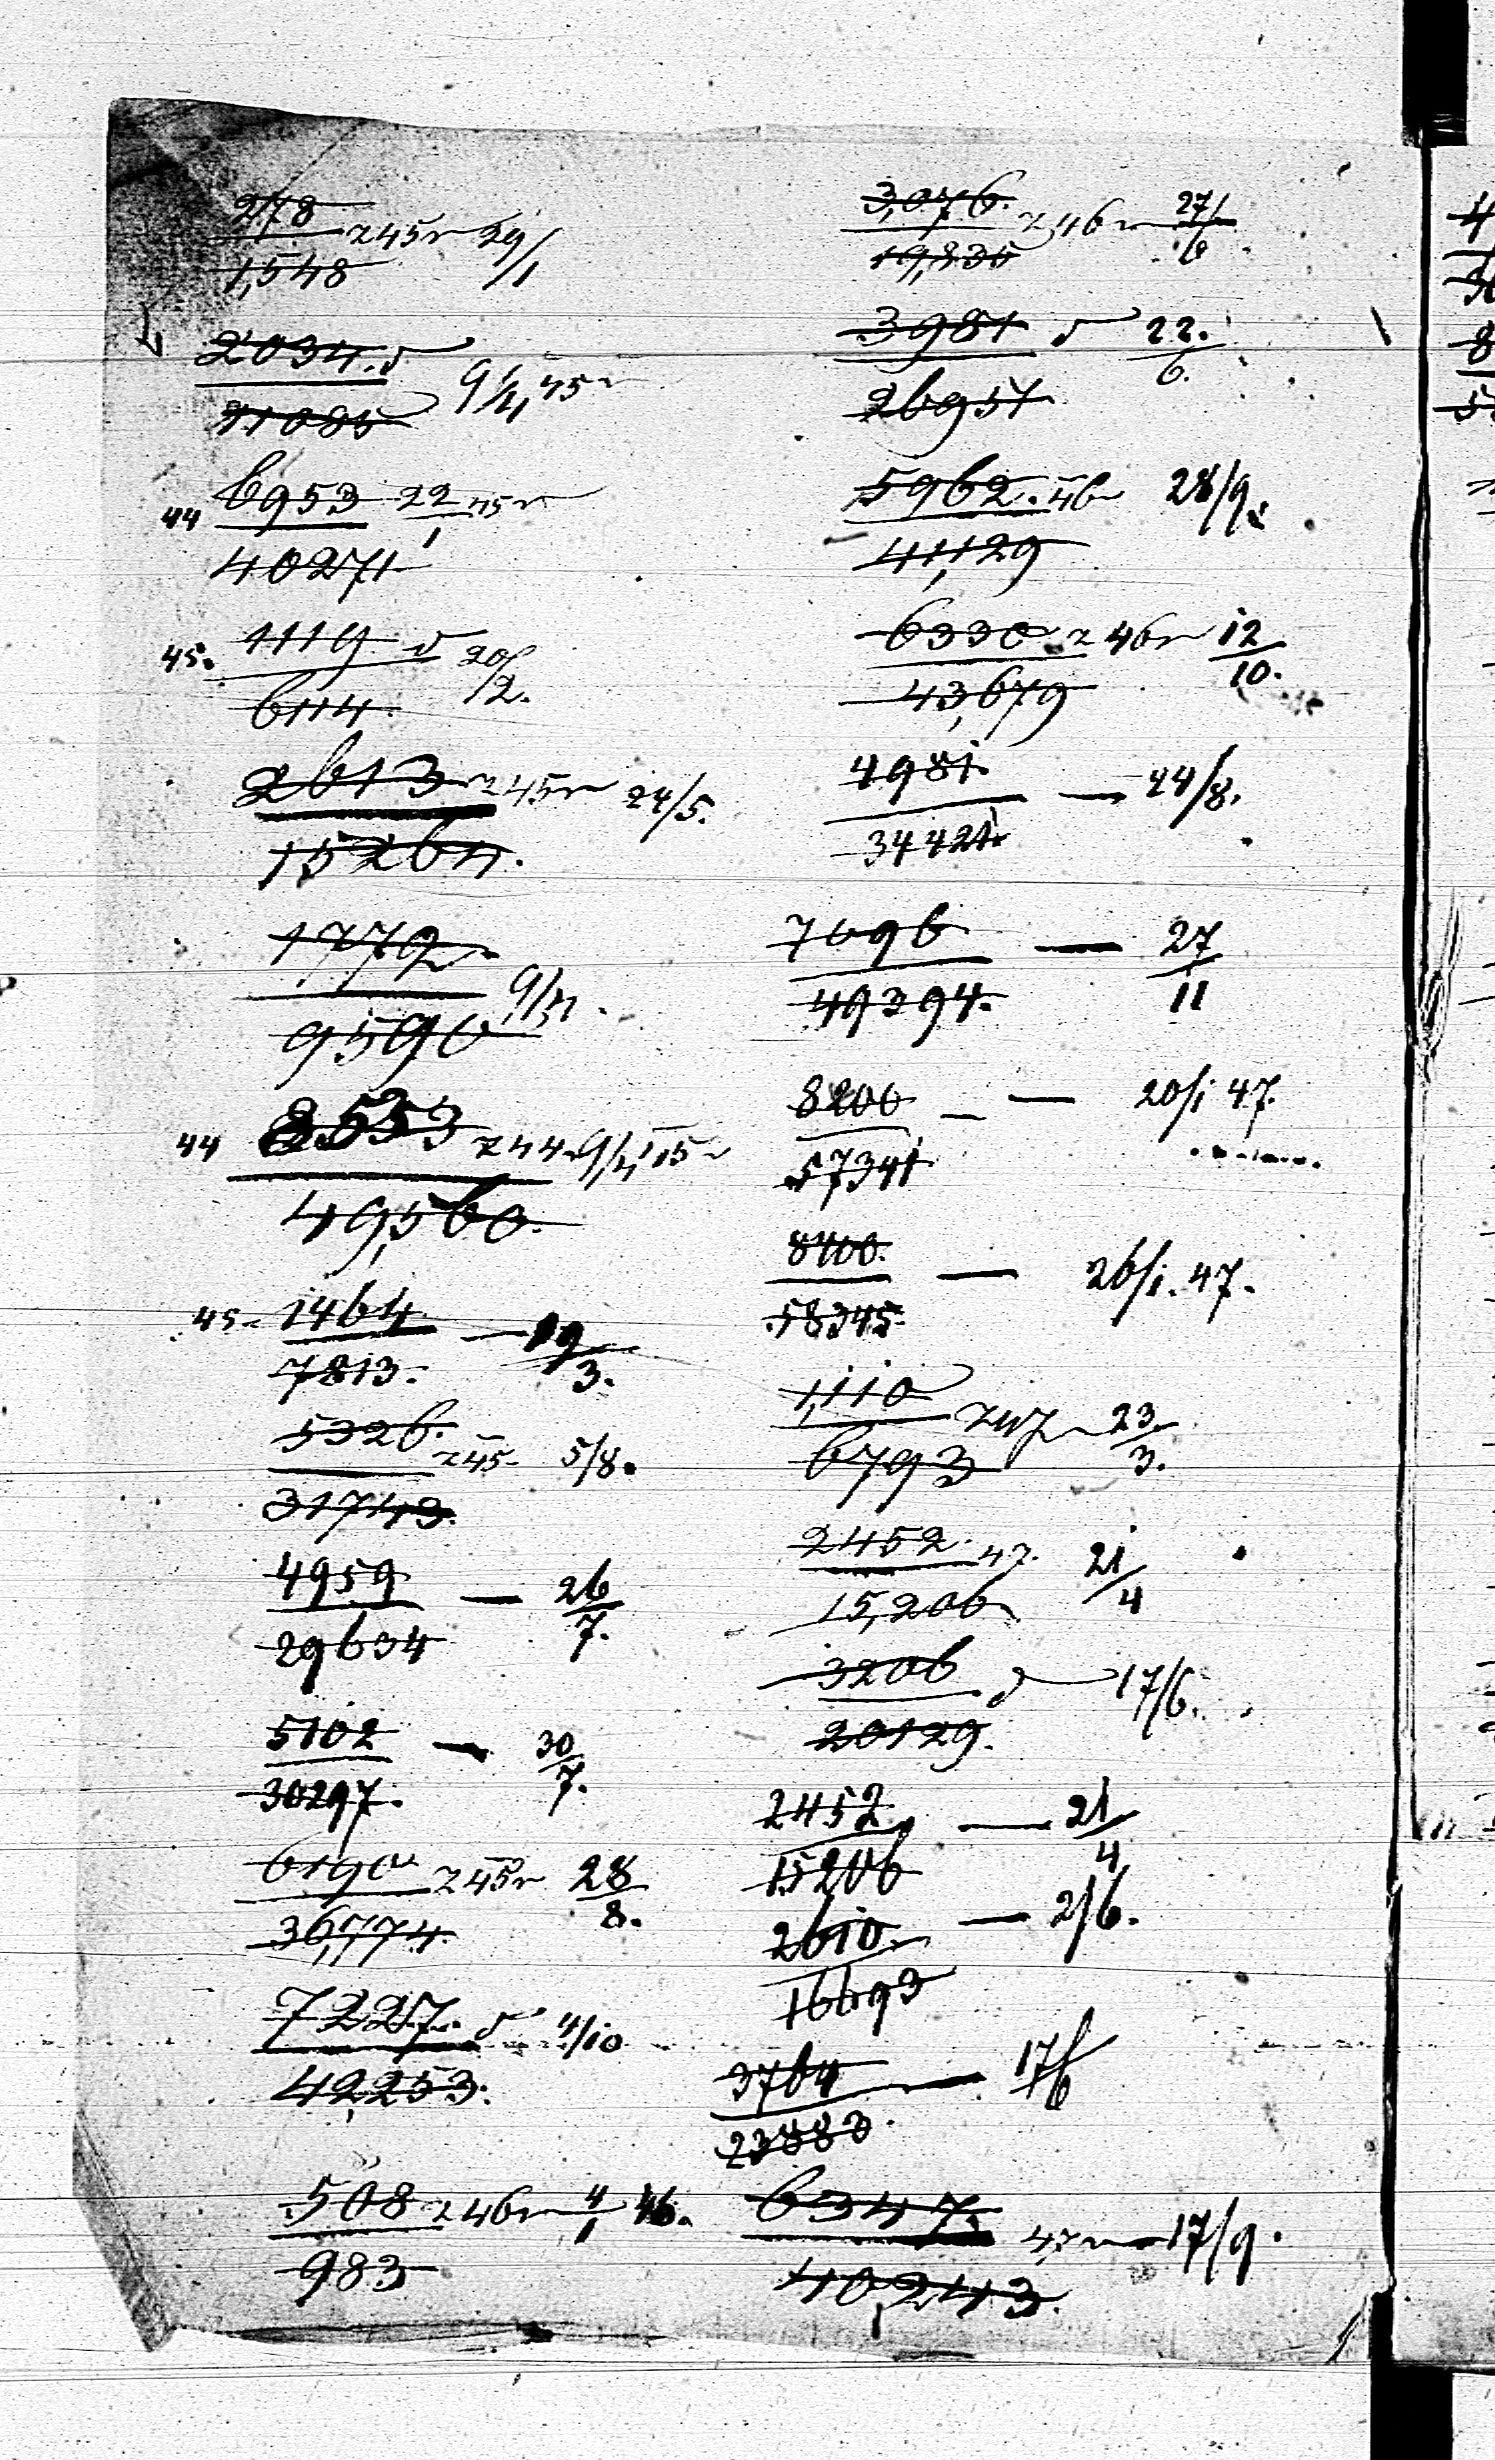 278 245r 29/1
1,548
2034. d 9/4, 45r
11085
44 6953 22/1 45r
40271
45. 1119 d 20/2.
6114.
2613 245r 24/5.
15264.
1772
9/4.
9590
44 8553 244r 9/4, 45r
49,560.
45- 1464 — 19/3.
7813.
5326. 245- 5/8.
31743.
4959 — 26/7.
29634
5102 — 30/7.
30297.
6190 245r 28/8.
36,774.
7227. d 4/10
42,253.
508 246r 4/1 46.
983
3,076. 246r 27/6.
19,830
3981 d 22./6.
26951
5962. 46r 28/9.
41,129
6330 246r 12/10.
43,679
4981. — 24/8.
34421.
7096 — 27/11
49394.
8200 — — 20/1 47.
57341
8400. — 26/1. 47.
58345.
1,110 247r 23/3.
6793
2452. 47. 21/4
15,206
3206 d — 17/6.
20129.
2452. — 21/4
15206
2610. — 2/6.
16693
3764 — 17/6
23883.
6347. 47r — 17/9.
40,243.